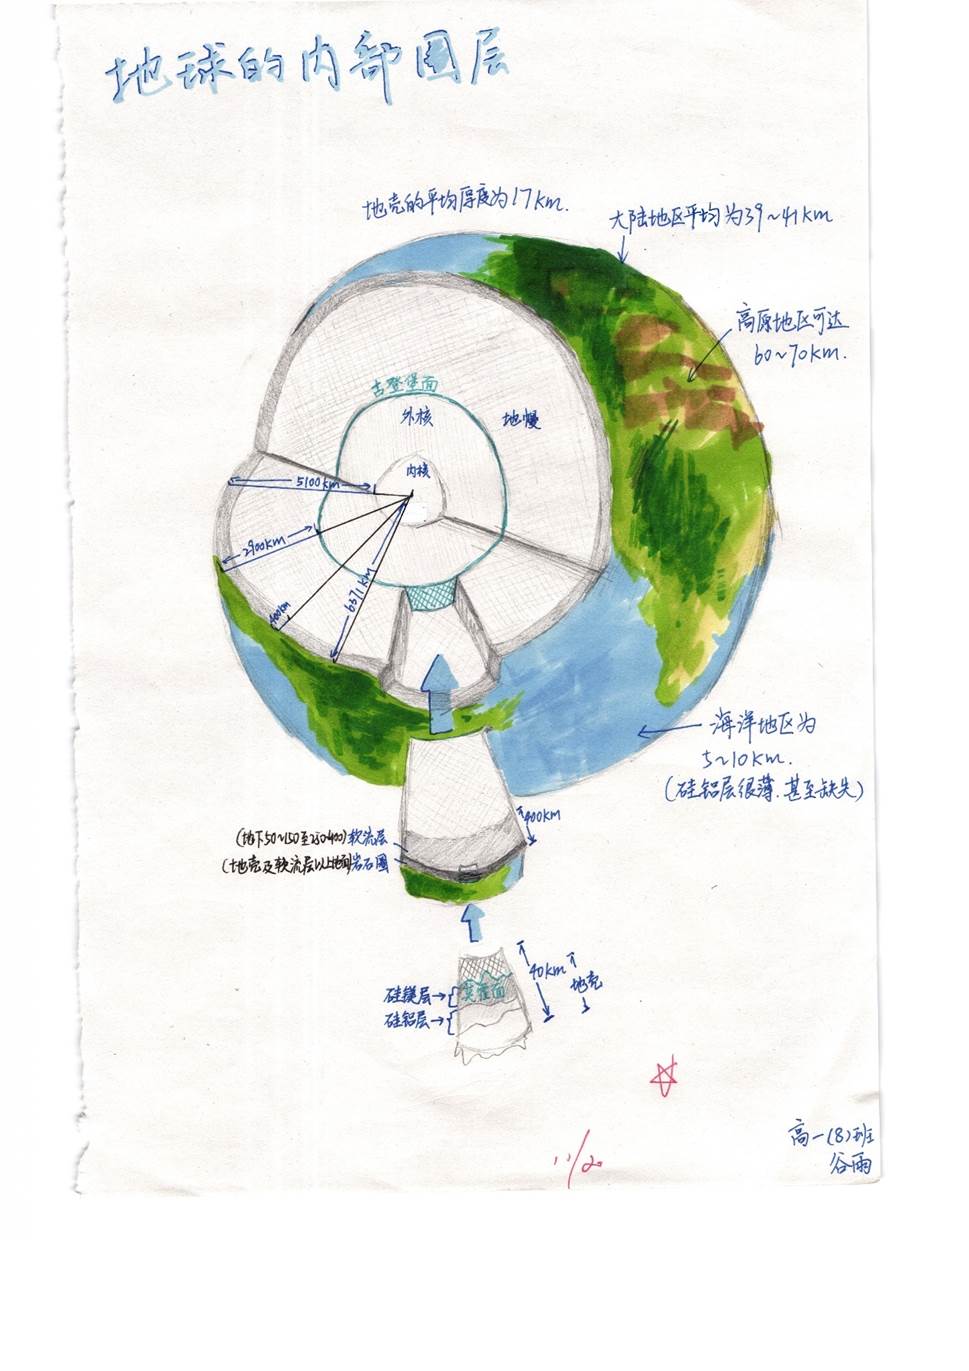 地球的内部圈层
地壳的平均厚度为17km.
大陆地区平均为39~41km
高原地区可达
60~70km.
古登堡面
外核
地慢
内核
5100km
2900km
400km
6371km
海洋地区为
5~10km.
(硅铝层很薄.甚至缺失)
400km
(地下50~150至250~400)软流层
(地壳及软流层以上地幔)岩石圈
40km
地壳
莫霍面
硅镁层
硅铝层
11/20
高一(8)班
谷雨